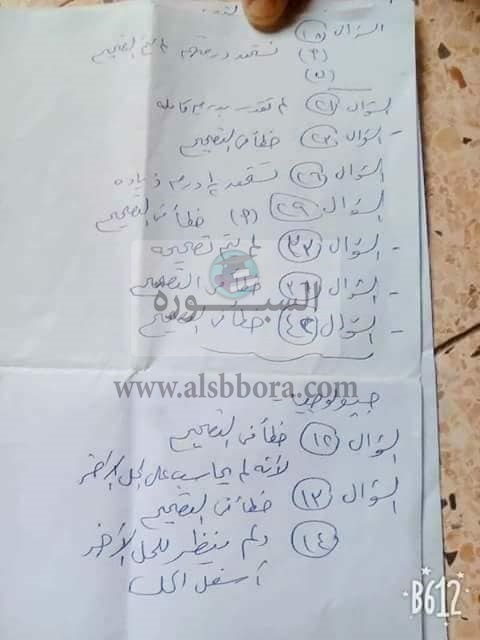 السؤال (١٥)
(٢) تستحق درجة لم يتم التصحيح
(ب)
السؤال (٢١) لم تقدر بدرجة كاملة
- السؤال (٢٣) خطأ فى التصحيح
السؤال (٢٦) تستحق درجة زيادة
السؤال (٢٩) (٢) خطأ فى التصحيح
- السؤال (٣٣) لم يتم تصحيحه
- السؤال خطأ فى التصحيح
السبورة
- السؤال خطأ فى التصحيح
www.alsbbora.com
جيولوجيا -
السؤال (١٢) خطأ فى التصحيح
لأنه لم يحاسب على الحل الأخر
السؤال (١٣) خطأ فى التصحيح
(١٤) ولم ينظر للحل الأخر
أسفل الحل
B612